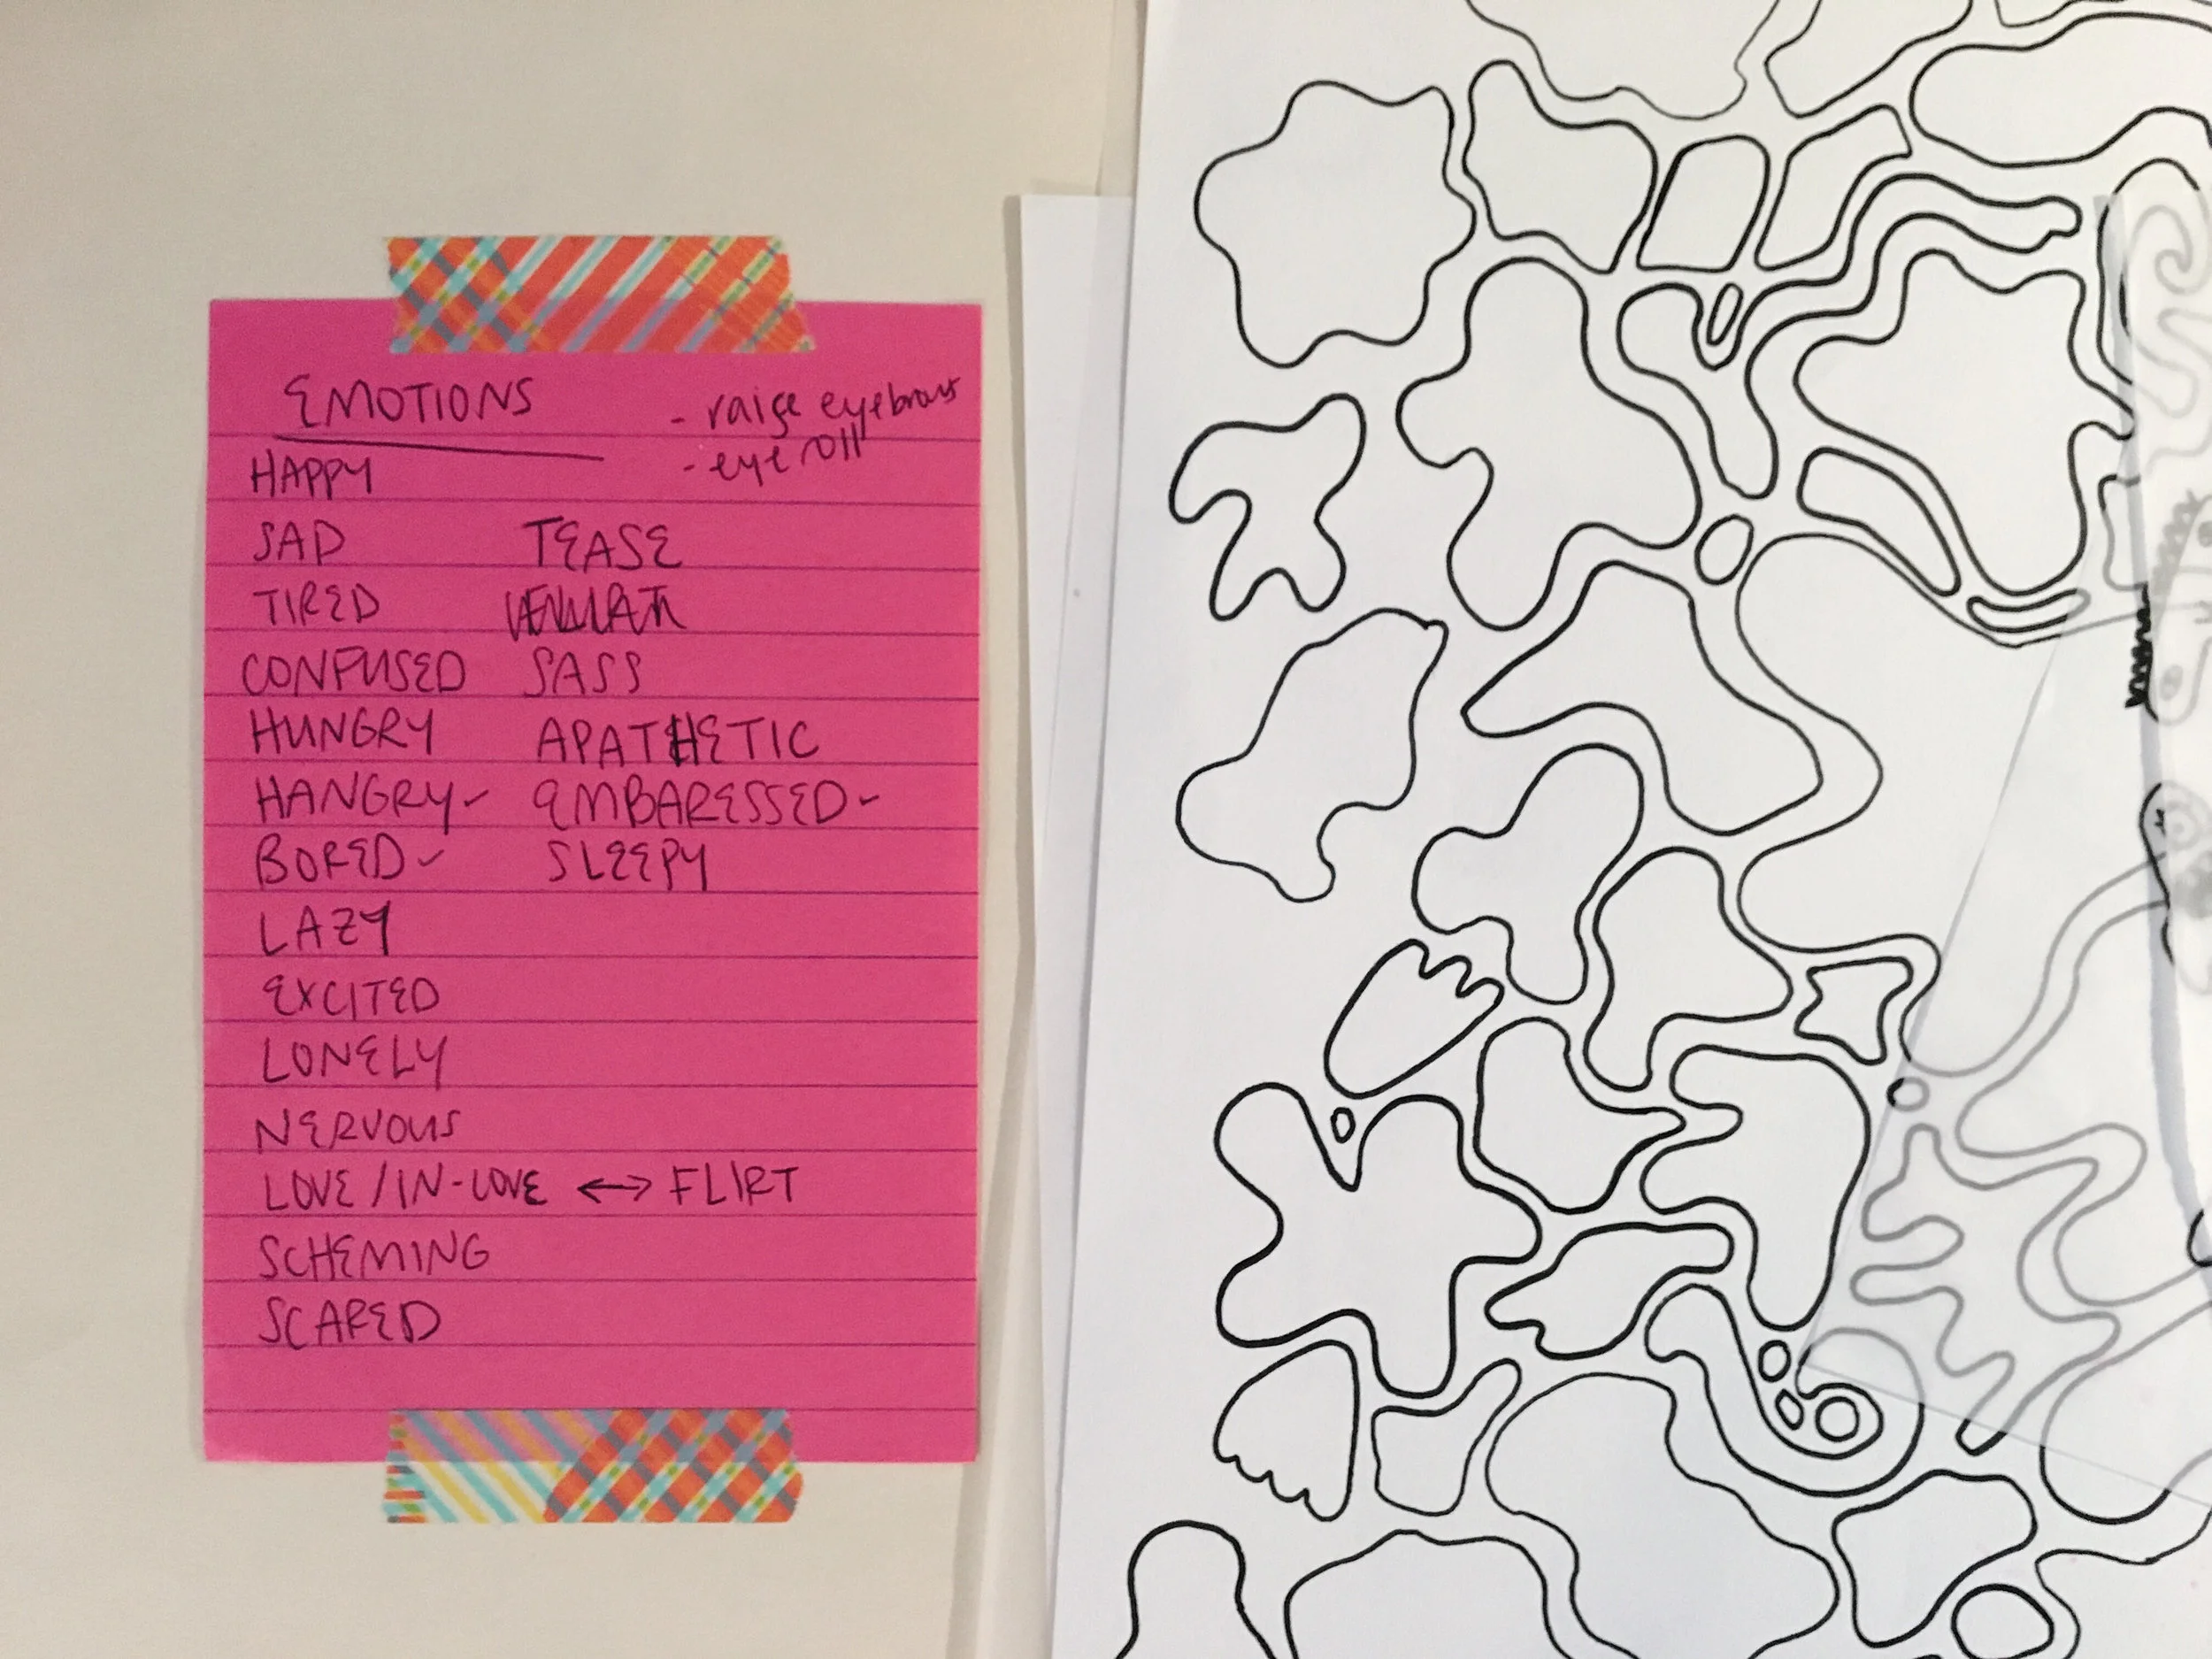 EMOTIONS
- raise eyebrows
- eye roll
HAPPY
SAD TEASE
TIRED
CONFUSED SASS
HUNGRY APATHETIC
HANGRY ✓ EMBARESSED ✓
BORED ✓ SLEEPY
LAZY
EXCITED
LONELY
NERVOUS
LOVE/IN-LOVE ↔ FLIRT
SCHEMING
SCARED